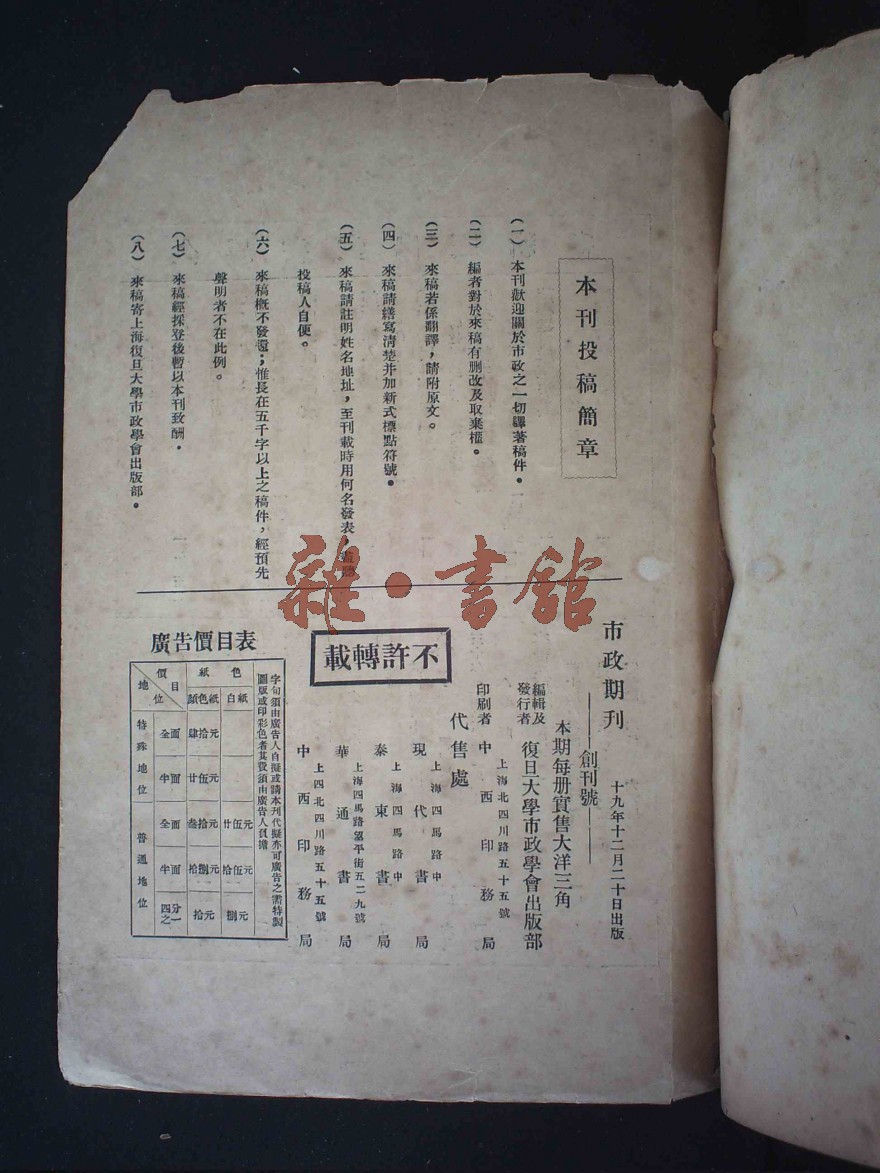 本刊投稿簡章
(一) 本刊歡迎關於市政之一切譯著稿件。
(二) 編者對於來稿有刪改及取棄權。
(三) 來稿若係翻譯，請附原文。
(四) 來稿請繕寫清楚并加新式標點符號。
(五) 來稿請註明姓名地址，至刊載時用何名發表，
投稿人自便。
(六) 來稿概不發還；惟長在五千字以上之稿件，經預先
聲明者不在此例。
(七) 來稿經採登後暫以本刊致酬。
(八) 來稿寄上海復旦大學市政學會出版部。
市政期刊
創刊號
十九年十二月二十日出版
本期每册實售大洋三角
編輯及發行者 復旦大學市政學會出版部
印刷者 中西印務局
上海北四川路五十五號
代售處
現代書局
上海四馬路中
泰東書局
上海四馬路中
華通書局
上海四馬路望平街五二九號
中西印務局
上四北四川路五十五號
不許轉載
廣告價目表
字句須由廣告人自擬或請本刊代擬亦可廣告之需特製
圖版或印彩色者其費須由廣告人負擔
價目 地位 紙色
顏色紙 白紙
特殊地位 全面 肆拾元
半面 廿伍元
普通地位 全面 叁拾元 廿伍元
半面 拾捌元 拾伍元
四分之一 拾元 捌元
雜·書館